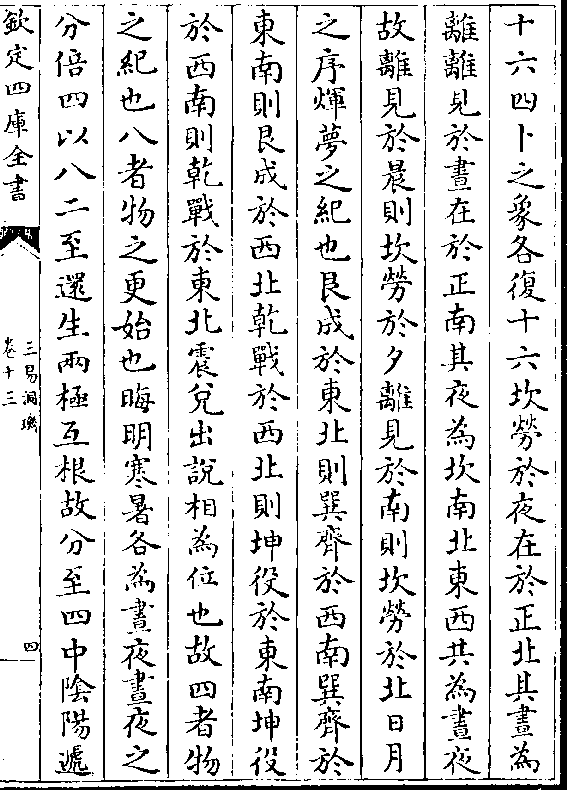 十六四卜之象各復十六坎勞於夜在於正北其晝為
離離見於晝在於正南其夜為坎南北東西共為晝夜
故離見於晨則坎勞於夕離見於南則坎勞於北日月
之序煇夢之紀也艮成於東北則巽齊於西南巽齊於
東南則艮成於西北乾戰於西北則坤役於東南坤役
於西南則乾戰於東北震兌出說相為位也故四者物
之紀也八者物之更始也晦明寒暑各為晝夜晝夜之
分倍四以八二至還生兩極互根故分至四中陰陽遞
欽定四庫全書
三易洞璣
卷十三
四